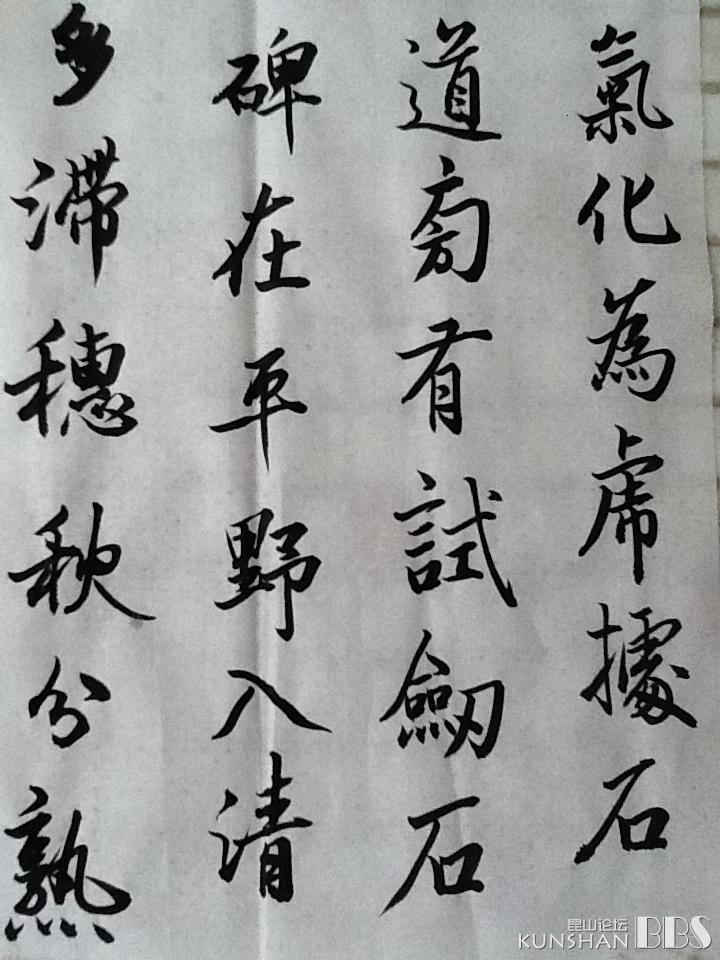 氣化為虎據石
道旁有試劍石
碑在平野入清
多滯穗秋分熟
昆山论坛
KUNSHAN BBS